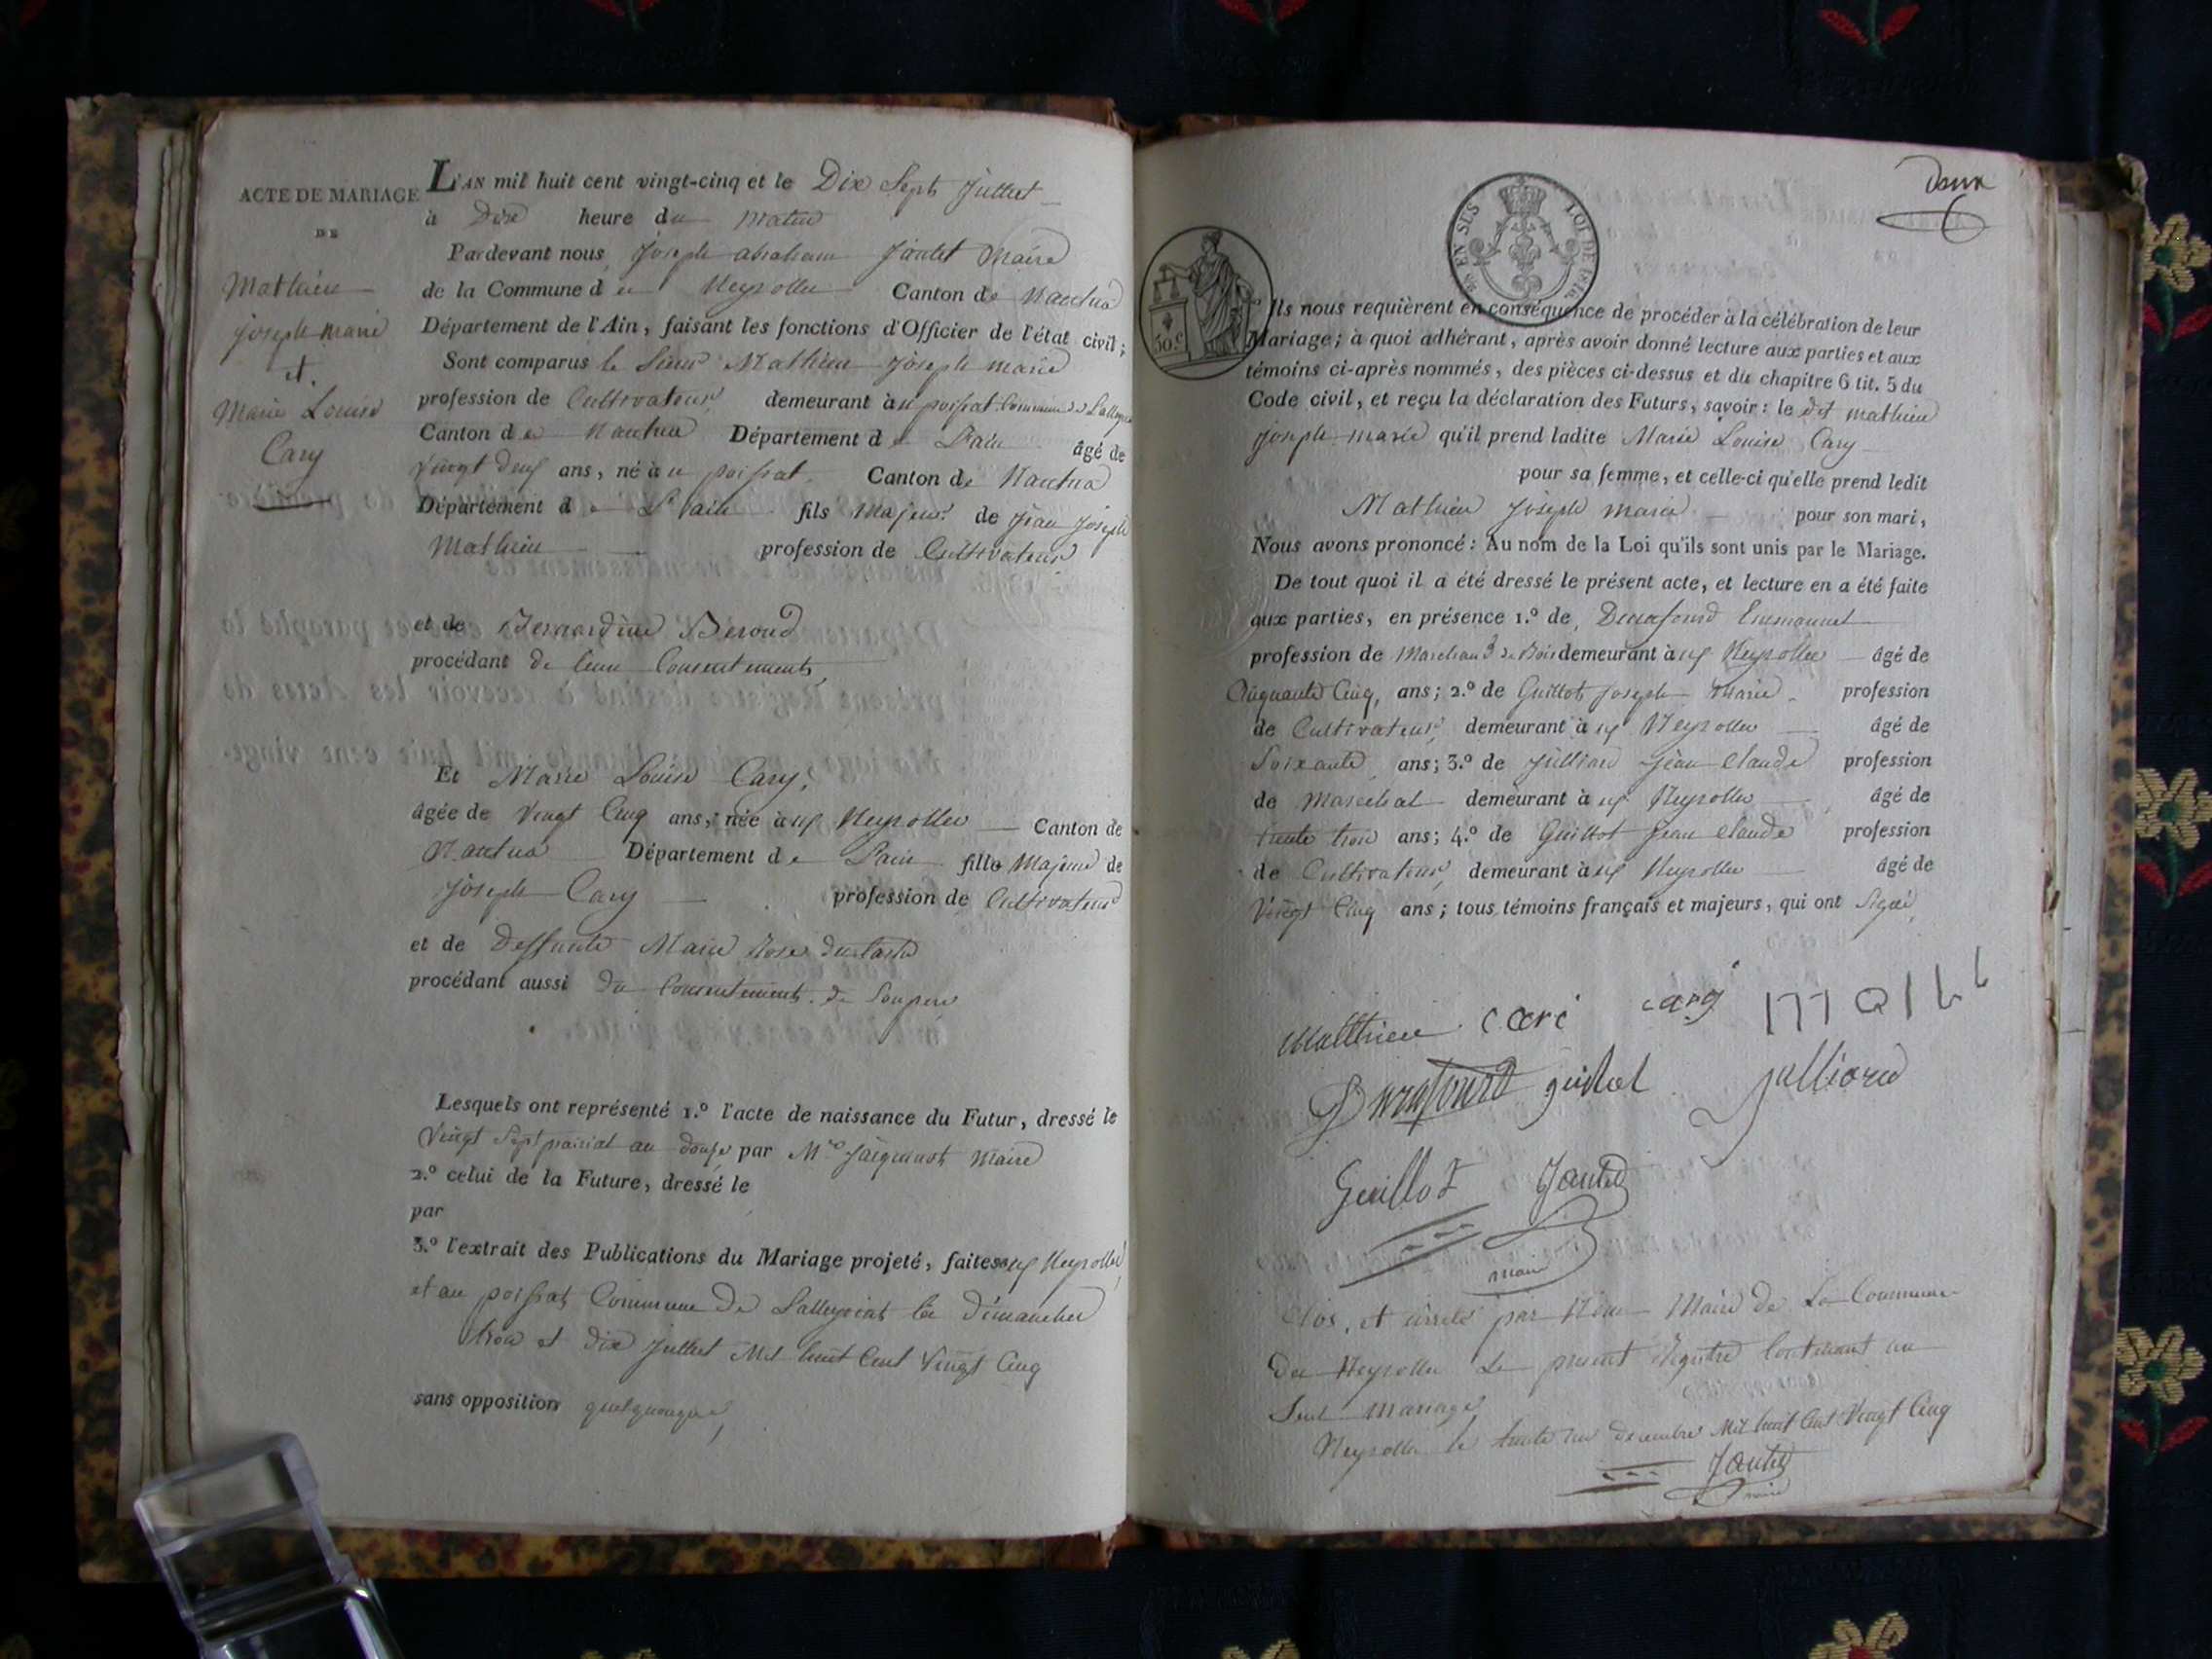 ACTE DE MARIAGE
DE
Mathieu
joseph marie
et.
Marie Louise
Cary
L'AN mil huit cent vingt-cinq et le Dix Sept Juillet
à Dix heure du Matin
Pardevant nous Joseph abraham Jantet Maire
de la Commune d es Neyrolles Canton de Nantua
Département de l'Ain, faisant les fonctions d'Officier de l'état civil;
Sont comparus le Sieur Mathieu joseph marie
profession de Cultivateur demeurant au poissat Commune de
Canton de Nantua Département de L'ain âgé de
Vingt ans, né au poissat Canton de Nantua
Département de L'ain fils Majeur de jean joseph
Mathieu profession de Cultivateur
et de Bernardine Beroud
procédant de leur Consentement,
Et Marie Louise Cary,
âgée de Vingt Cinq ans, née à Neyrolles Canton de
Nantua Département de L'ain fille Majeure de
Joseph Cary profession de Cultivateur
et de Deffunte Marie Rose
procédant aussi du Consentement de Son pere
Lesquels ont représenté 1.° l'acte de naissance du Futur, dressé le
Vingt Sept prairial an douze par Mre Jaiquinot Maire
2.° celui de la Future, dressé le
par
3.° l'extrait des Publications du Mariage projeté, faites Neyrolles
et au poissat Commune de Lalleyriat les dimanches
trois et dix juillet Mil huit Cent Vingt Cinq
sans opposition quelquonque,
deux
50.c
LOI DE 1816.
EN SUS
Ils nous requièrent en conséquence de procéder à la célébration de leur
Mariage; à quoi adhérant, après avoir donné lecture aux parties et aux
témoins ci-après nommés, des pièces ci-dessus et du chapitre 6 tit. 5 du
Code civil, et reçu la déclaration des Futurs, savoir: le dit mathieu
joseph marie qu'il prend ladite Marie Louise Cary
pour sa femme, et celle-ci qu'elle prend ledit
Mathieu Joseph marie pour son mari,
Nous avons prononcé: Au nom de la Loi qu'ils sont unis par le Mariage.
De tout quoi il a été dressé le présent acte, et lecture en a été faite
aux parties, en présence 1.° de Durafourd Emmanuel
profession de Marchand de Bois demeurant à Neyrolles âgé de
Cinquante Cinq, ans; 2.° de Guillot joseph Marie profession
de Cultivateur, demeurant à Neyrolles âgé de
Soixante ans; 3.° de Julliard Jean Claude profession
de Marechal demeurant à Neyrolles âgé de
trente trois ans; 4.° de Guillot Jean Claude profession
de Cultivateur, demeurant à Neyrolles âgé de
Vingt Cinq ans; tous témoins français et majeurs, qui ont Signé,
Matthieu cari cary
Durafourd guillot julliard
Guillot Jantet
maire
Clos, et arrete par Nous Maire de La Commune
des Neyrolles Le present Registre Contenant un
Seul Mariage,
Neyrolles le trente un decembre Mil huit Cent Vingt Cinq
Jantet
maire